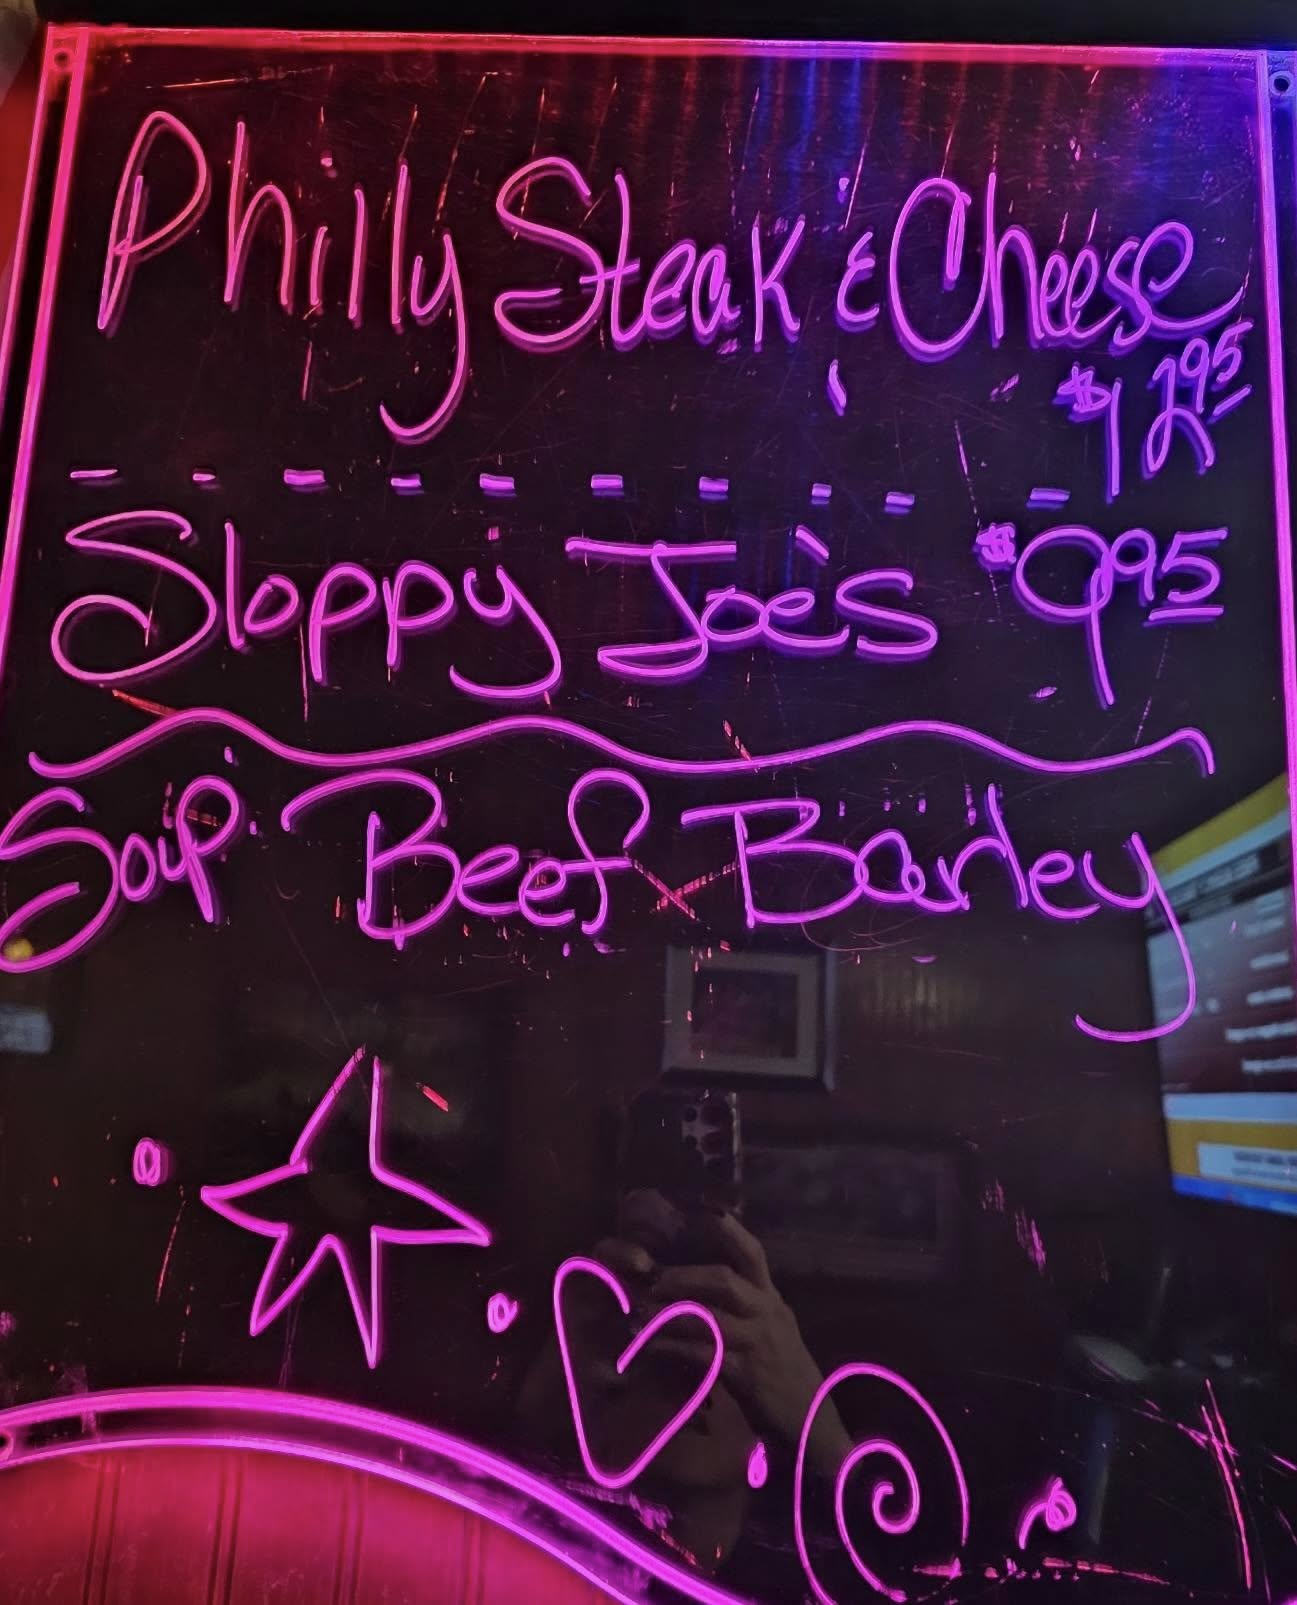 Philly Steak & Cheese
$12.95
Sloppy Joe's $9.95
Soup Beef Barley